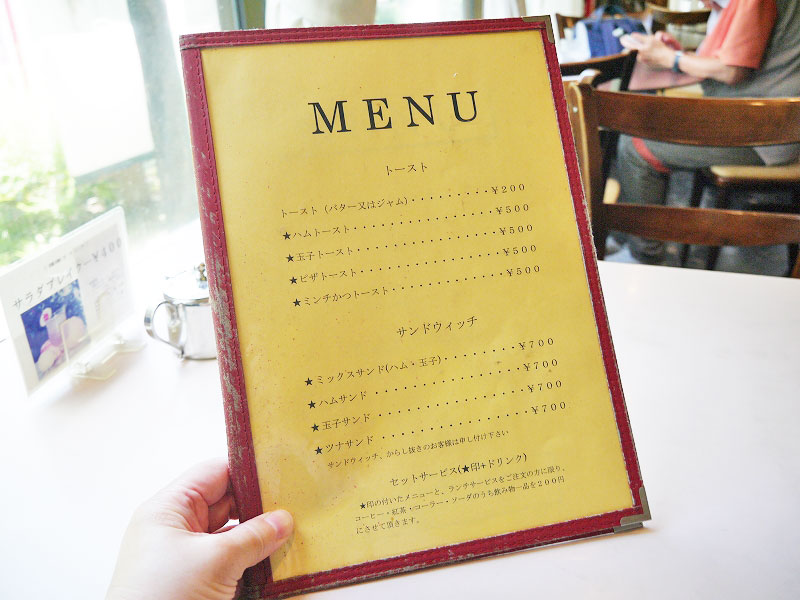 MENU
トースト
トースト (バター又はジャム)・・・・・・・・・￥200
★ハムトースト・・・・・・・・・・・・・・・￥500
★玉子トースト・・・・・・・・・・・・・・・￥500
★ピザトースト・・・・・・・・・・・・・・・￥500
★ミンチかつトースト・・・・・・・・・・・・￥500
サンドウィッチ
★ミックスサンド(ハム・玉子)・・・・・・・・￥700
★ハムサンド ・・・・・・・・・・・・・・・・￥700
★玉子サンド ・・・・・・・・・・・・・・・・￥700
★ツナサンド ・・・・・・・・・・・・・・・・￥700
サンドウィッチ、からし抜きのお客様は申し付け下さい
セットサービス(★印+ドリンク)
★印の付いたメニューと、ランチサービスをご注文の方に限り、
コーヒー・紅茶・コーラー・ソーダのうち飲み物一品を２００円
にさせて頂きます。
サラダプレイター￥400